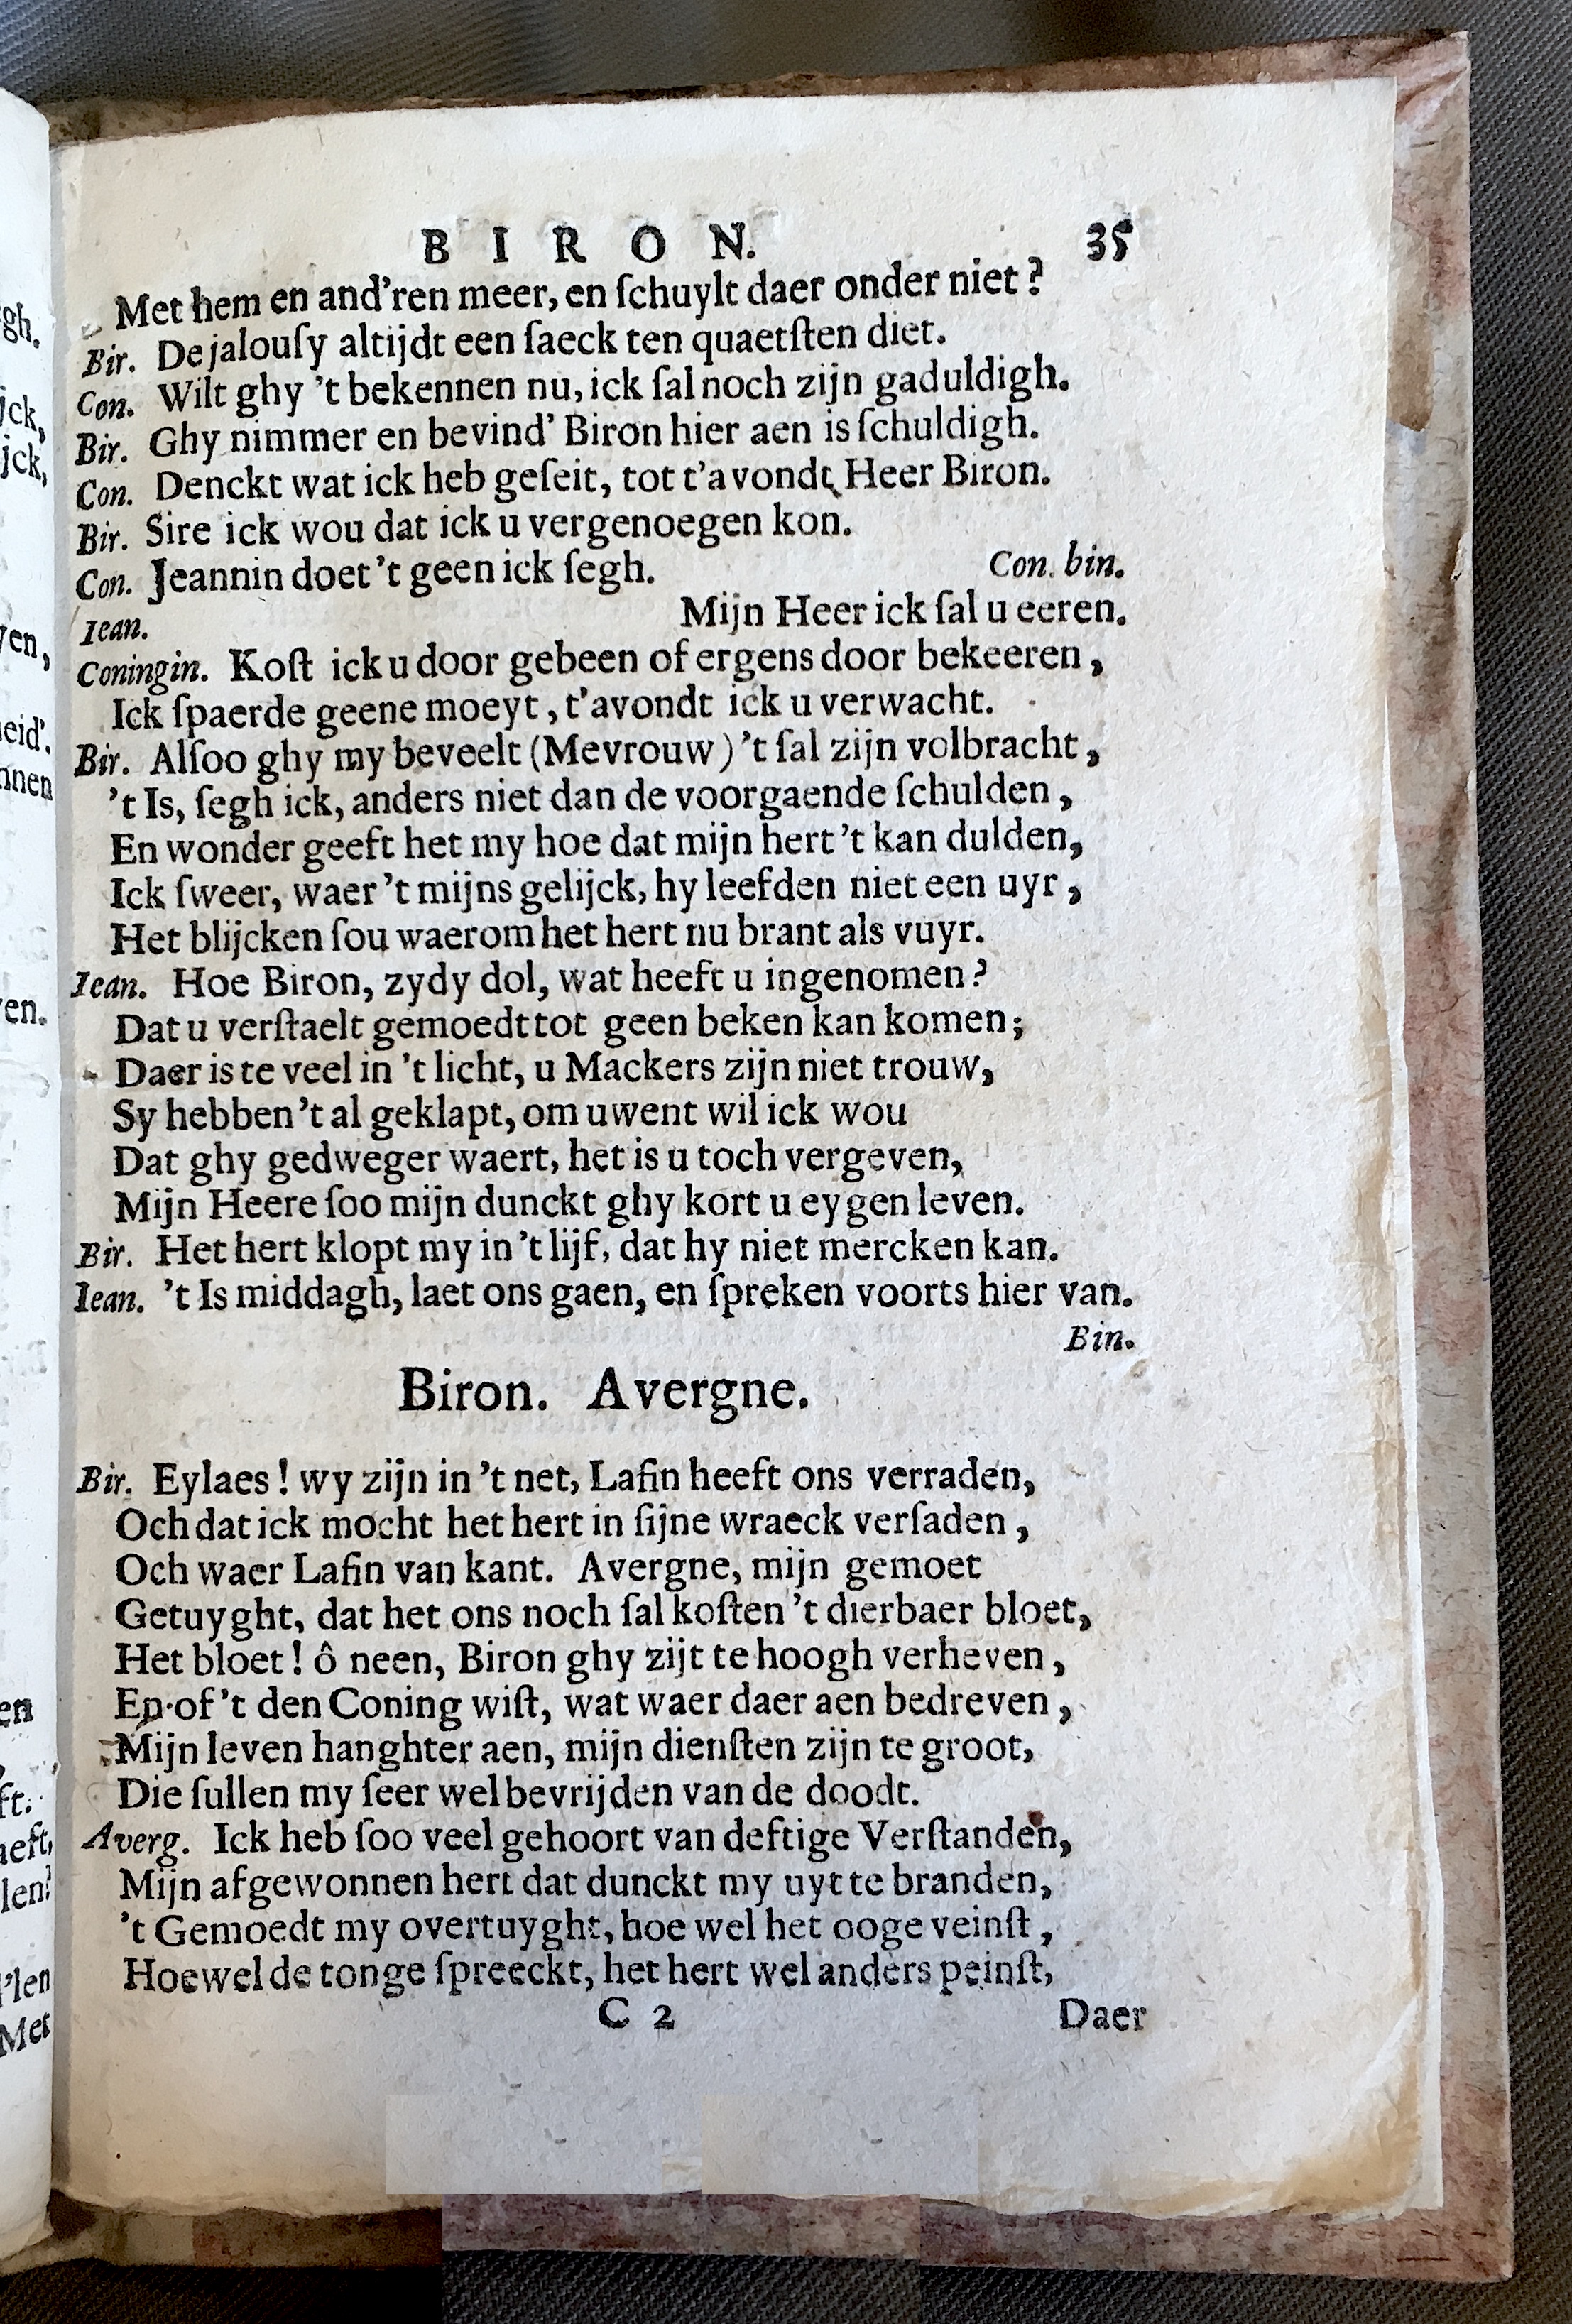 BIRON. 35
Met hem en and'ren meer, en ſchuylt daer onder niet?
Bir. De jalouſy altijdt een ſaeck ten quaetſten diet.
Con. Wilt ghy 't bekennen nu, ick ſal noch zijn gaduldigh.
Bir. Ghy nimmer en bevind' Biron hier aen is ſchuldigh.
Con. Denckt wat ick heb geſeit, tot t'avondt Heer Biron.
Bir. Sire ick wou dat ick u vergenoegen kon.
Con. Jeannin doet 't geen ick ſegh. Con. bin.
Iean. Mijn Heer ick ſal u eeren.
Coningin. Koſt ick u door gebeen of ergens door bekeeren,
Ick ſpaerde geene moeyt, t'avondt ick u verwacht.
Bir. Alſoo ghy my beveelt (Mevrouw) 't ſal zijn volbracht,
't Is, ſegh ick, anders niet dan de voorgaende ſchulden,
En wonder geeft het my hoe dat mijn hert 't kan dulden,
Ick ſweer, waer 't mijns gelijck, hy leefden niet een uyr,
Het blijcken ſou waerom het hert nu brant als vuyr.
Iean. Hoe Biron, zydy dol, wat heeft u ingenomen?
Dat u verſtaelt gemoedt tot geen beken kan komen;
Daer is te veel in 't licht, u Mackers zijn niet trouw,
Sy hebben 't al geklapt, om uwent wil ick wou
Dat ghy gedweger waert, het is u toch vergeven,
Mijn Heere ſoo mijn dunckt ghy kort u eygen leven.
Bir. Het hert klopt my in 't lijf, dat hy niet mercken kan.
Iean. 't Is middagh, laet ons gaen, en ſpreken voorts hier van.
Bin.
Biron. Avergne.
Bir. Eylaes! wy zijn in 't net, Lafin heeft ons verraden,
Och dat ick mocht het hert in ſijne wraeck verſaden,
Och waer Lafin van kant. Avergne, mijn gemoet
Getuyght, dat het ons noch ſal koſten 't dierbaer bloet,
Het bloet! ô neen, Biron ghy zijt te hoogh verheven,
En of 't den Coning wiſt, wat waer daer aen bedreven,
Mijn leven hanghter aen, mijn dienſten zijn te groot,
Die ſullen my ſeer wel bevrijden van de doodt.
Averg. Ick heb ſoo veel gehoort van deftige Verſtanden,
Mijn afgewonnen hert dat dunckt my uyt te branden,
't Gemoedt my overtuyght, hoe wel het ooge veinſt,
Hoewel de tonge ſpreeckt, het hert wel anders peinſt,
C 2 Daer